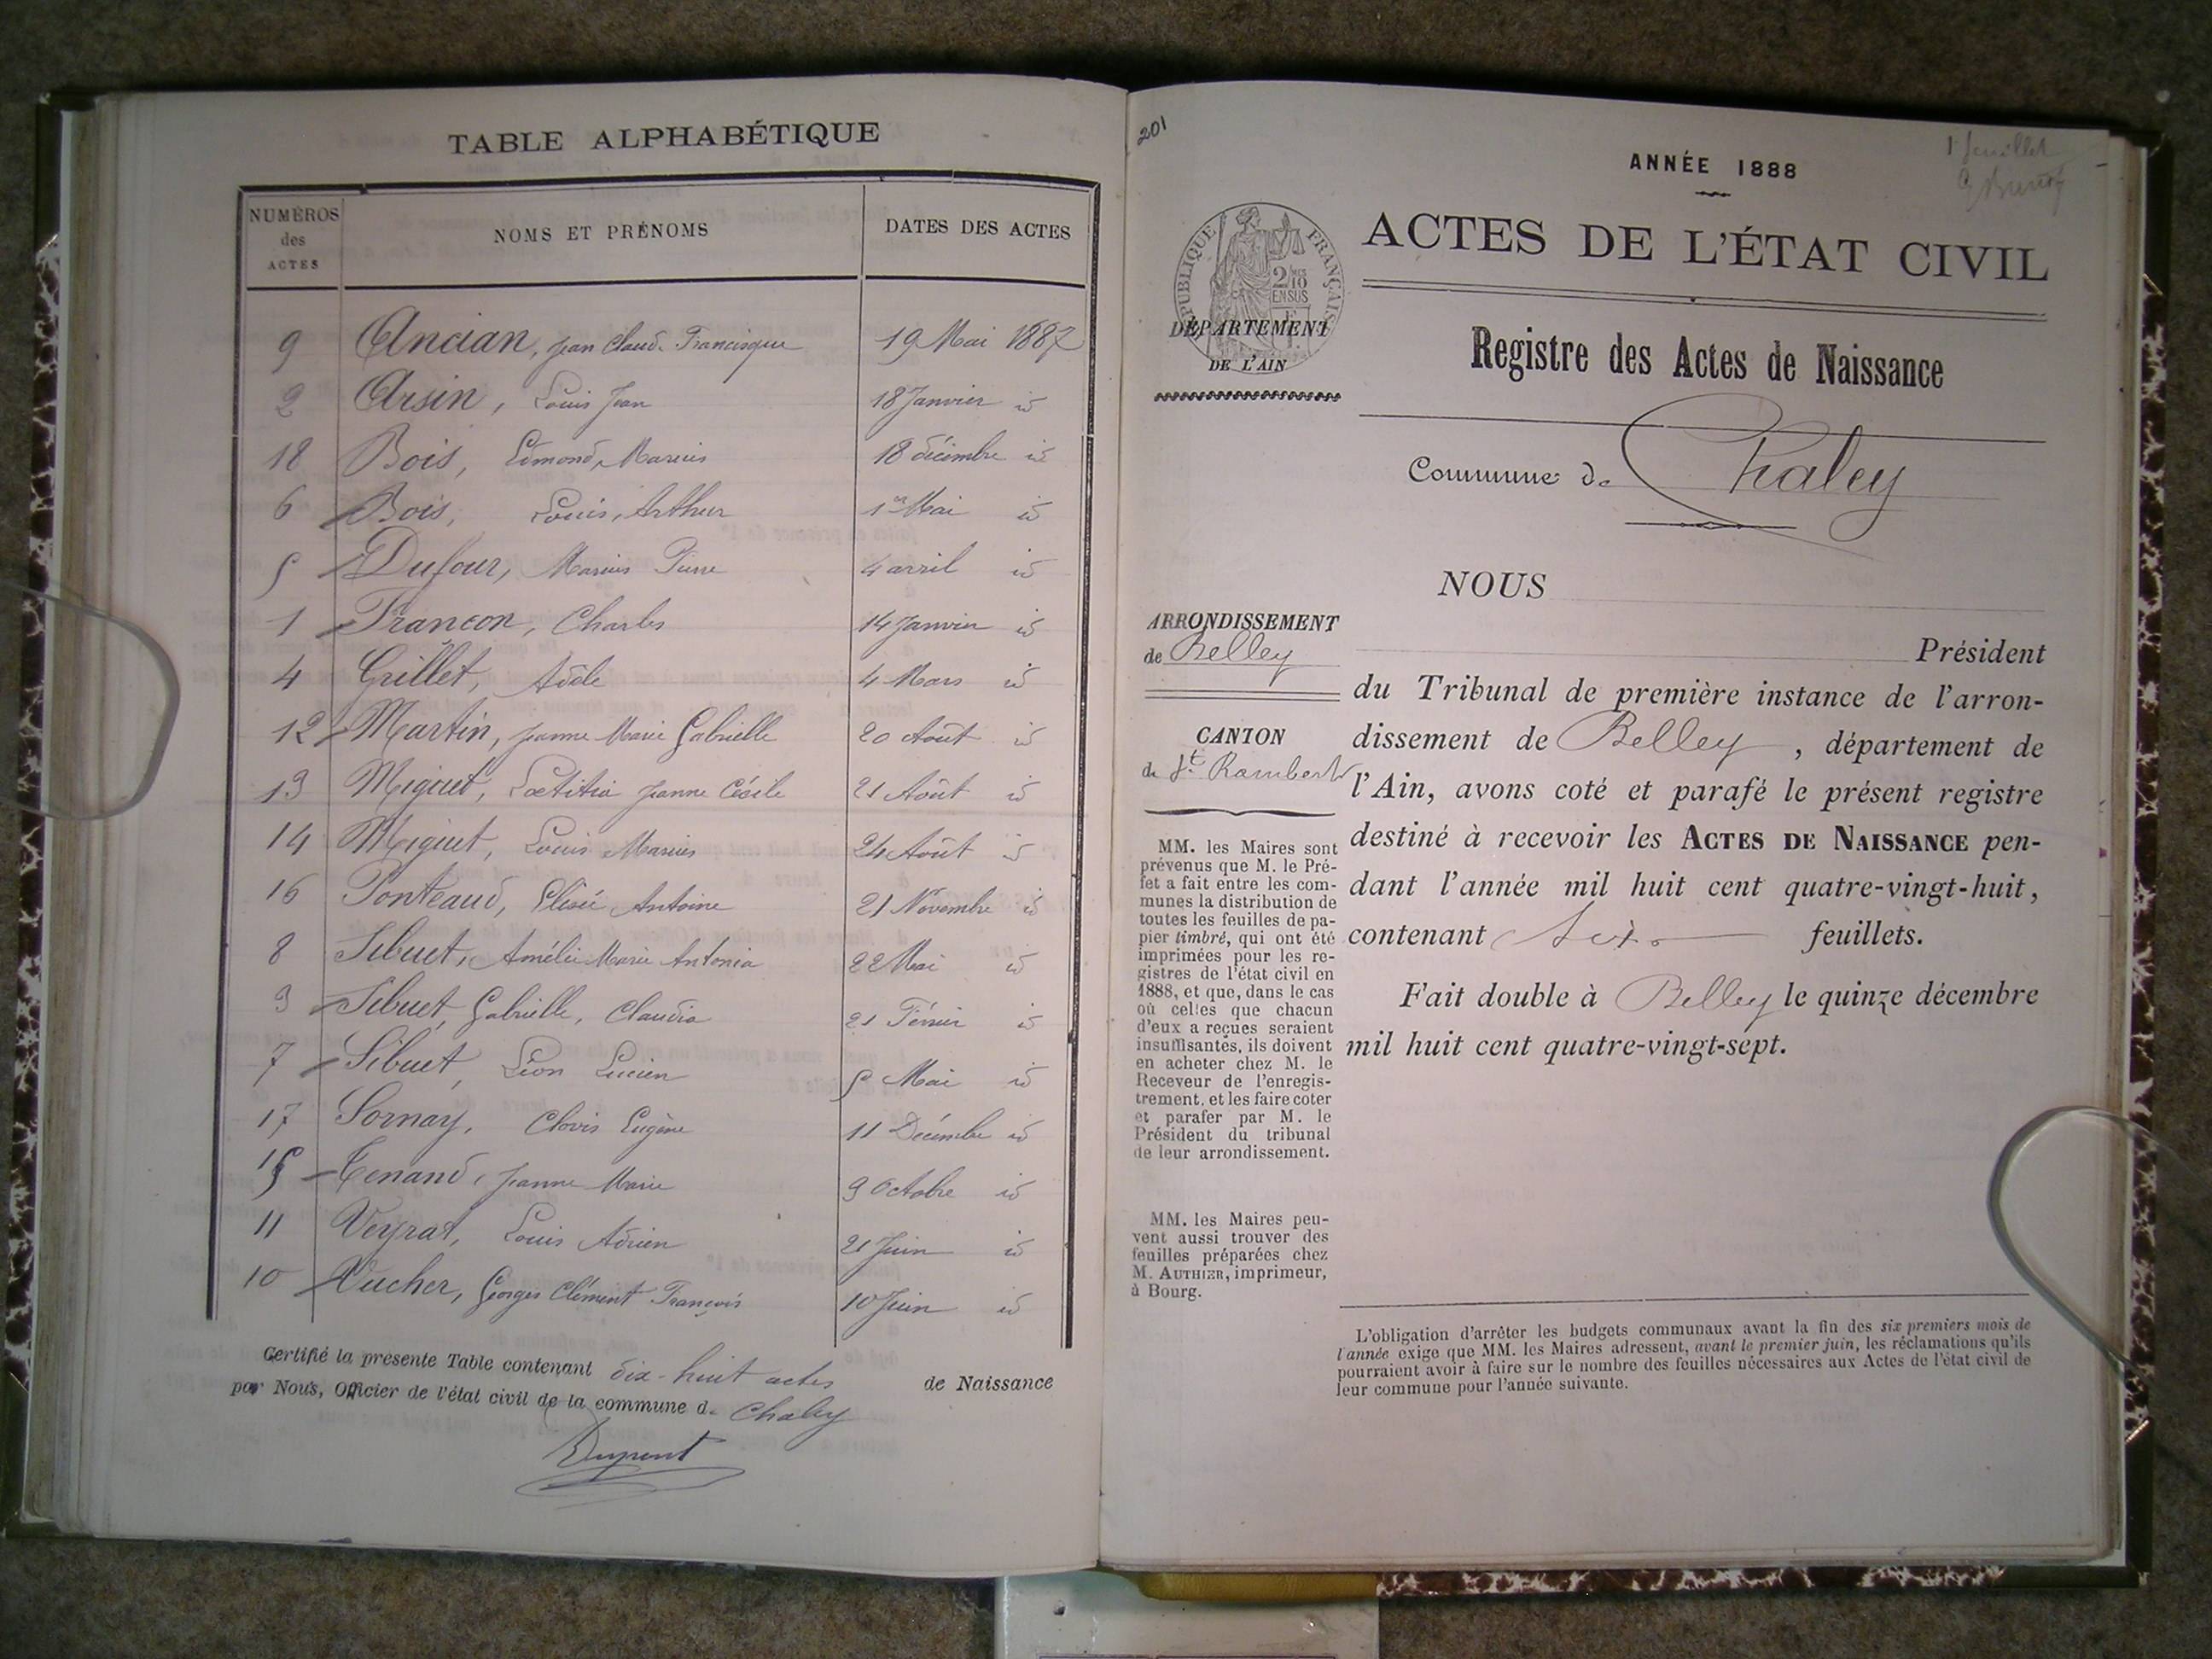 TABLE ALPHABÉTIQUE
NUMÉROS des ACTES NOMS ET PRÉNOMS DATES DES ACTES
9 Ancian, Jean Claude Francisque 19 Mai 1887
2 Arsin, Louis Jean 18 Janvier id
18 Bois, Edmond, Marius 18 décembre id
6 Bois, Louis, Arthur 1er Mai id
5 Dufour, Marius Pierre 4 avril id
1 Françon, Charles 14 Janvier id
4 Grillet, Adèle 4 Mars id
12 Martin, Jeanne Marie Gabrielle 20 Août id
13 Miguet, Lœtitia Jeanne Cécile 21 Août id
14 Miguet, Louis Marius 24 Août id
16 Ponteaud, Elisée Antoine 21 Novembre id
8 Sibuet, Amélie Marie Antonia 22 Mai id
3 Sibuet, Gabrielle, Claudia 21 Février id
7 Sibuet, Léon Lucien 5 Mai id
17 Sornay, Clovis Eugène 11 Décembre id
15 Tenand, Jeanne Marie 9 Octobre id
11 Veyrat, Louis Adrien 21 Juin id
10 Vucher, Georges Clément François 10 Juin id
Certifié la présente Table contenant dix-huit actes de Naissance
par Nous, Officier de l'état civil de la commune de Chaley
Dupont
201
1er feuillet
ANNÉE 1888
ACTES DE L'ÉTAT CIVIL
RÉPUBLIQUE FRANÇAISE
2/10
EN SUS
DÉPARTEMENT
DE L'AIN
Registre des Actes de Naissance
Commune de Chaley
NOUS
ARRONDISSEMENT
de Belley
CANTON
de St Rambert
MM. les Maires sont
prévenus que M. le Pré-
fet a fait entre les com-
munes la distribution de
toutes les feuilles de pa-
pier timbré, qui ont été
imprimées pour les re-
gistres de l'état civil en
1888, et que, dans le cas
où celles que chacun
d'eux a reçues seraient
insuffisantes, ils doivent
en acheter chez M. le
Receveur de l'enregis-
trement, et les faire coter
et parafer par M. le
Président du tribunal
de leur arrondissement.
MM. les Maires peu-
vent aussi trouver des
feuilles préparées chez
M. AUTHIER, imprimeur,
à Bourg.
Président
du Tribunal de première instance de l'arron-
dissement de Belley, département de
l'Ain, avons coté et parafé le présent registre
destiné à recevoir les ACTES DE NAISSANCE pen-
dant l'année mil huit cent quatre-vingt-huit,
contenant feuillets.
Fait double à Belley le quinze décembre
mil huit cent quatre-vingt-sept.
L'obligation d'arrêter les budgets communaux avant la fin des six premiers mois de
l'année exige que MM. les Maires adressent, avant le premier juin, les réclamations qu'ils
pourraient avoir à faire sur le nombre des feuilles nécessaires aux Actes de l'état civil de
leur commune pour l'année suivante.